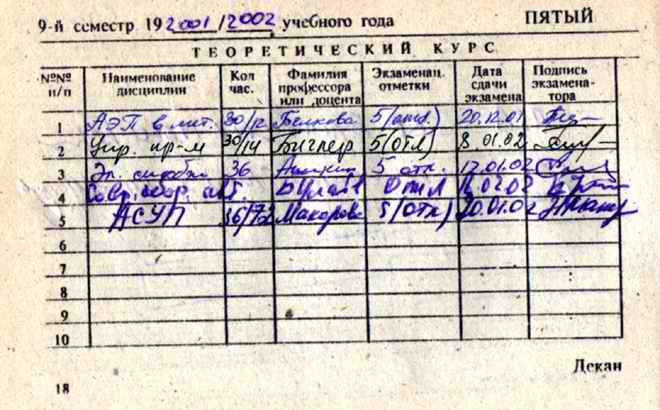 9-й семестр 192001/2002 учебного года ПЯТЫЙ
ТЕОРЕТИЧЕСКИЙ КУРС
№№ п/п Наименование дисциплин Кол час. Фамилия профессора или доцента Экзаменац. отметки Дата сдачи экзамена Подпись экзаменатора
1 АЭП в 30/ Белкова 5 (отл.) 20.12.01
2 Упр. пр-м 30/14 5 (ОТЛ) 8.01.02
3 Эл. 36 5 отл. 12.01.02
4 Совр. Отл
5 АСУП 36/72 Макаров 5 (отл) 20.01.02
6
7
8
9
10
Декан
18